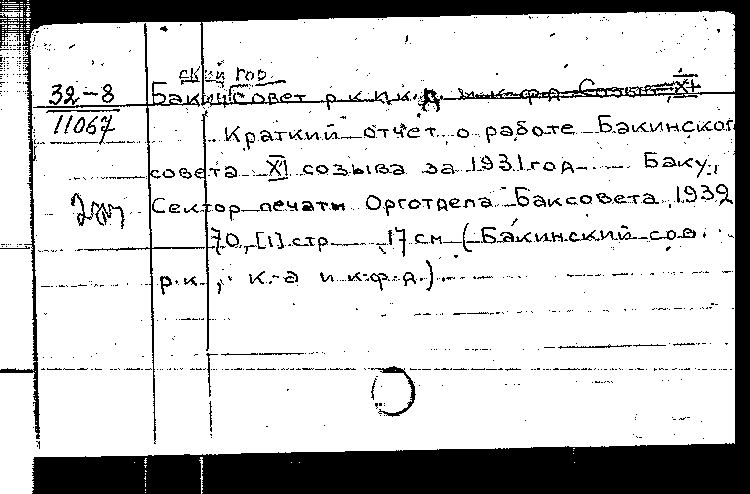 ский гор.
32-8 Бакин совет р.к.и к. д и к.ф.д. Созыв, XI
11067
Краткий отчет о работе Бакинског
совета XI созыва за 1931 год. Баку,
Сектор печати Орготдела Баксовета, 1932
70, [1] стр. 17 см (Бакинский сов.
р.к., к.-д и к.ф.д.).